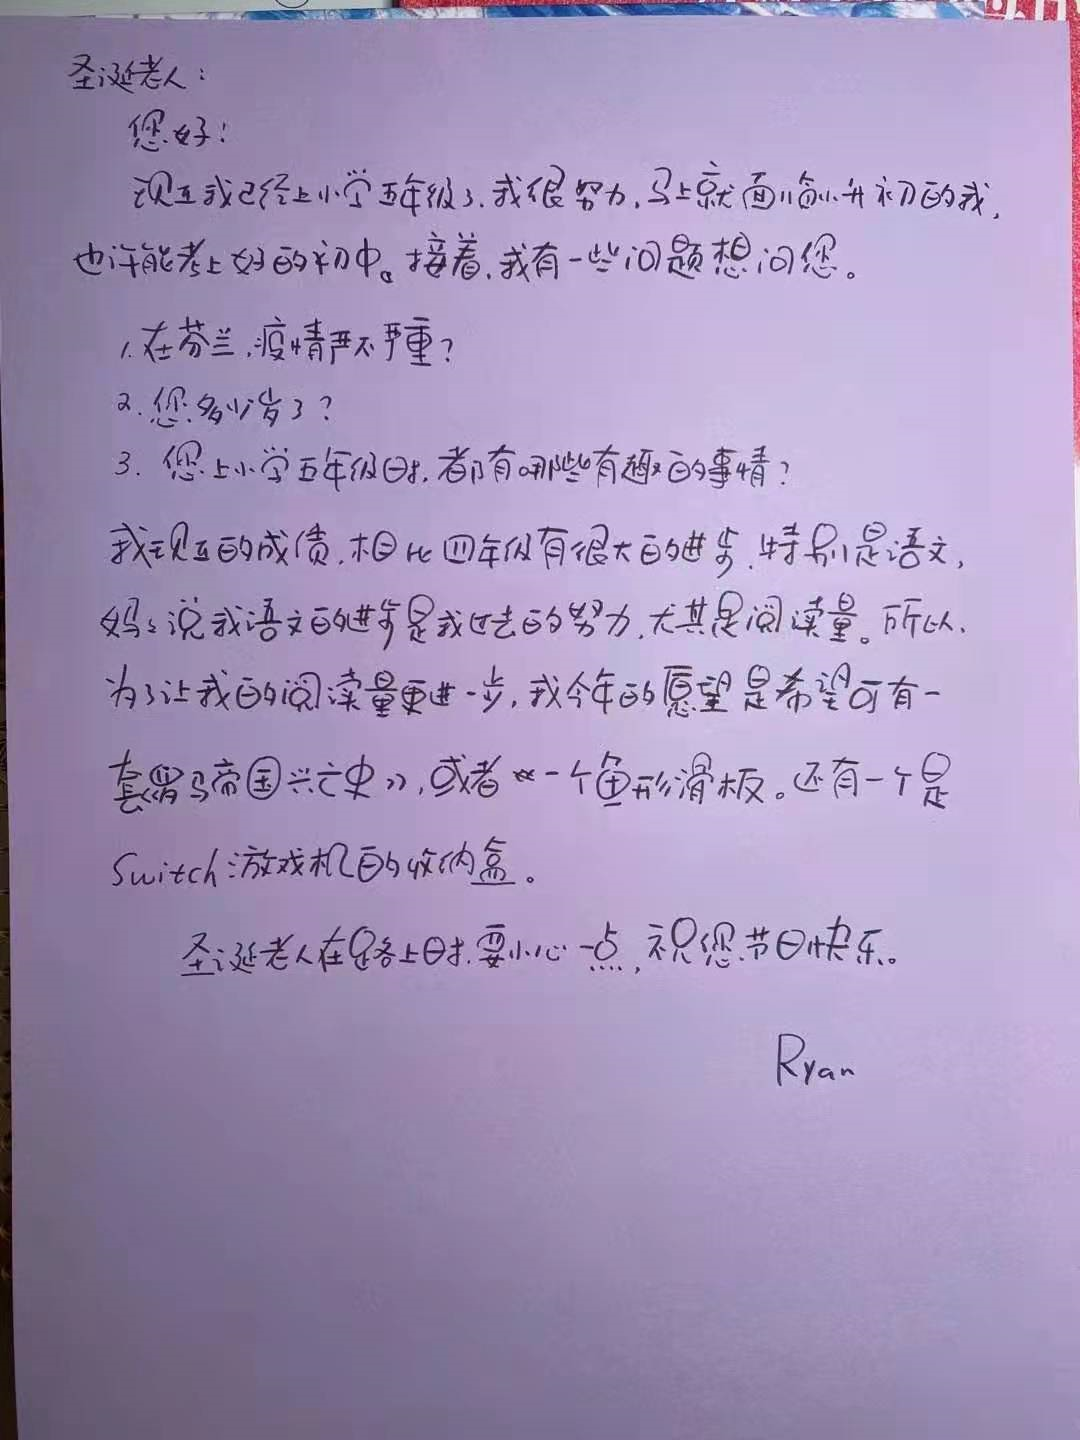 圣诞老人：
您好！
现在我已经上小学五年级了，我很努力，马上就面临小升初的我，
也许能考上好的初中。接着，我有一些问题想问您。
1. 在芬兰，疫情严不严重？
2. 您多少岁了？
3. 您上小学五年级时，都有哪些有趣的事情？
我现在的成债，相比四年级有很大的进步，特别是语文，
妈妈说我语文的进步是我过去的努力，尤其是阅读量。所以，
为了让我的阅读量更进一步，我今年的愿望是希望可有一
套《罗马帝国兴亡史》，或者《一个鱼形滑板。还有一个是
Switch游戏机的收纳盒。
圣诞老人在路上时，要小心一点，祝您节日快乐。
Ryan